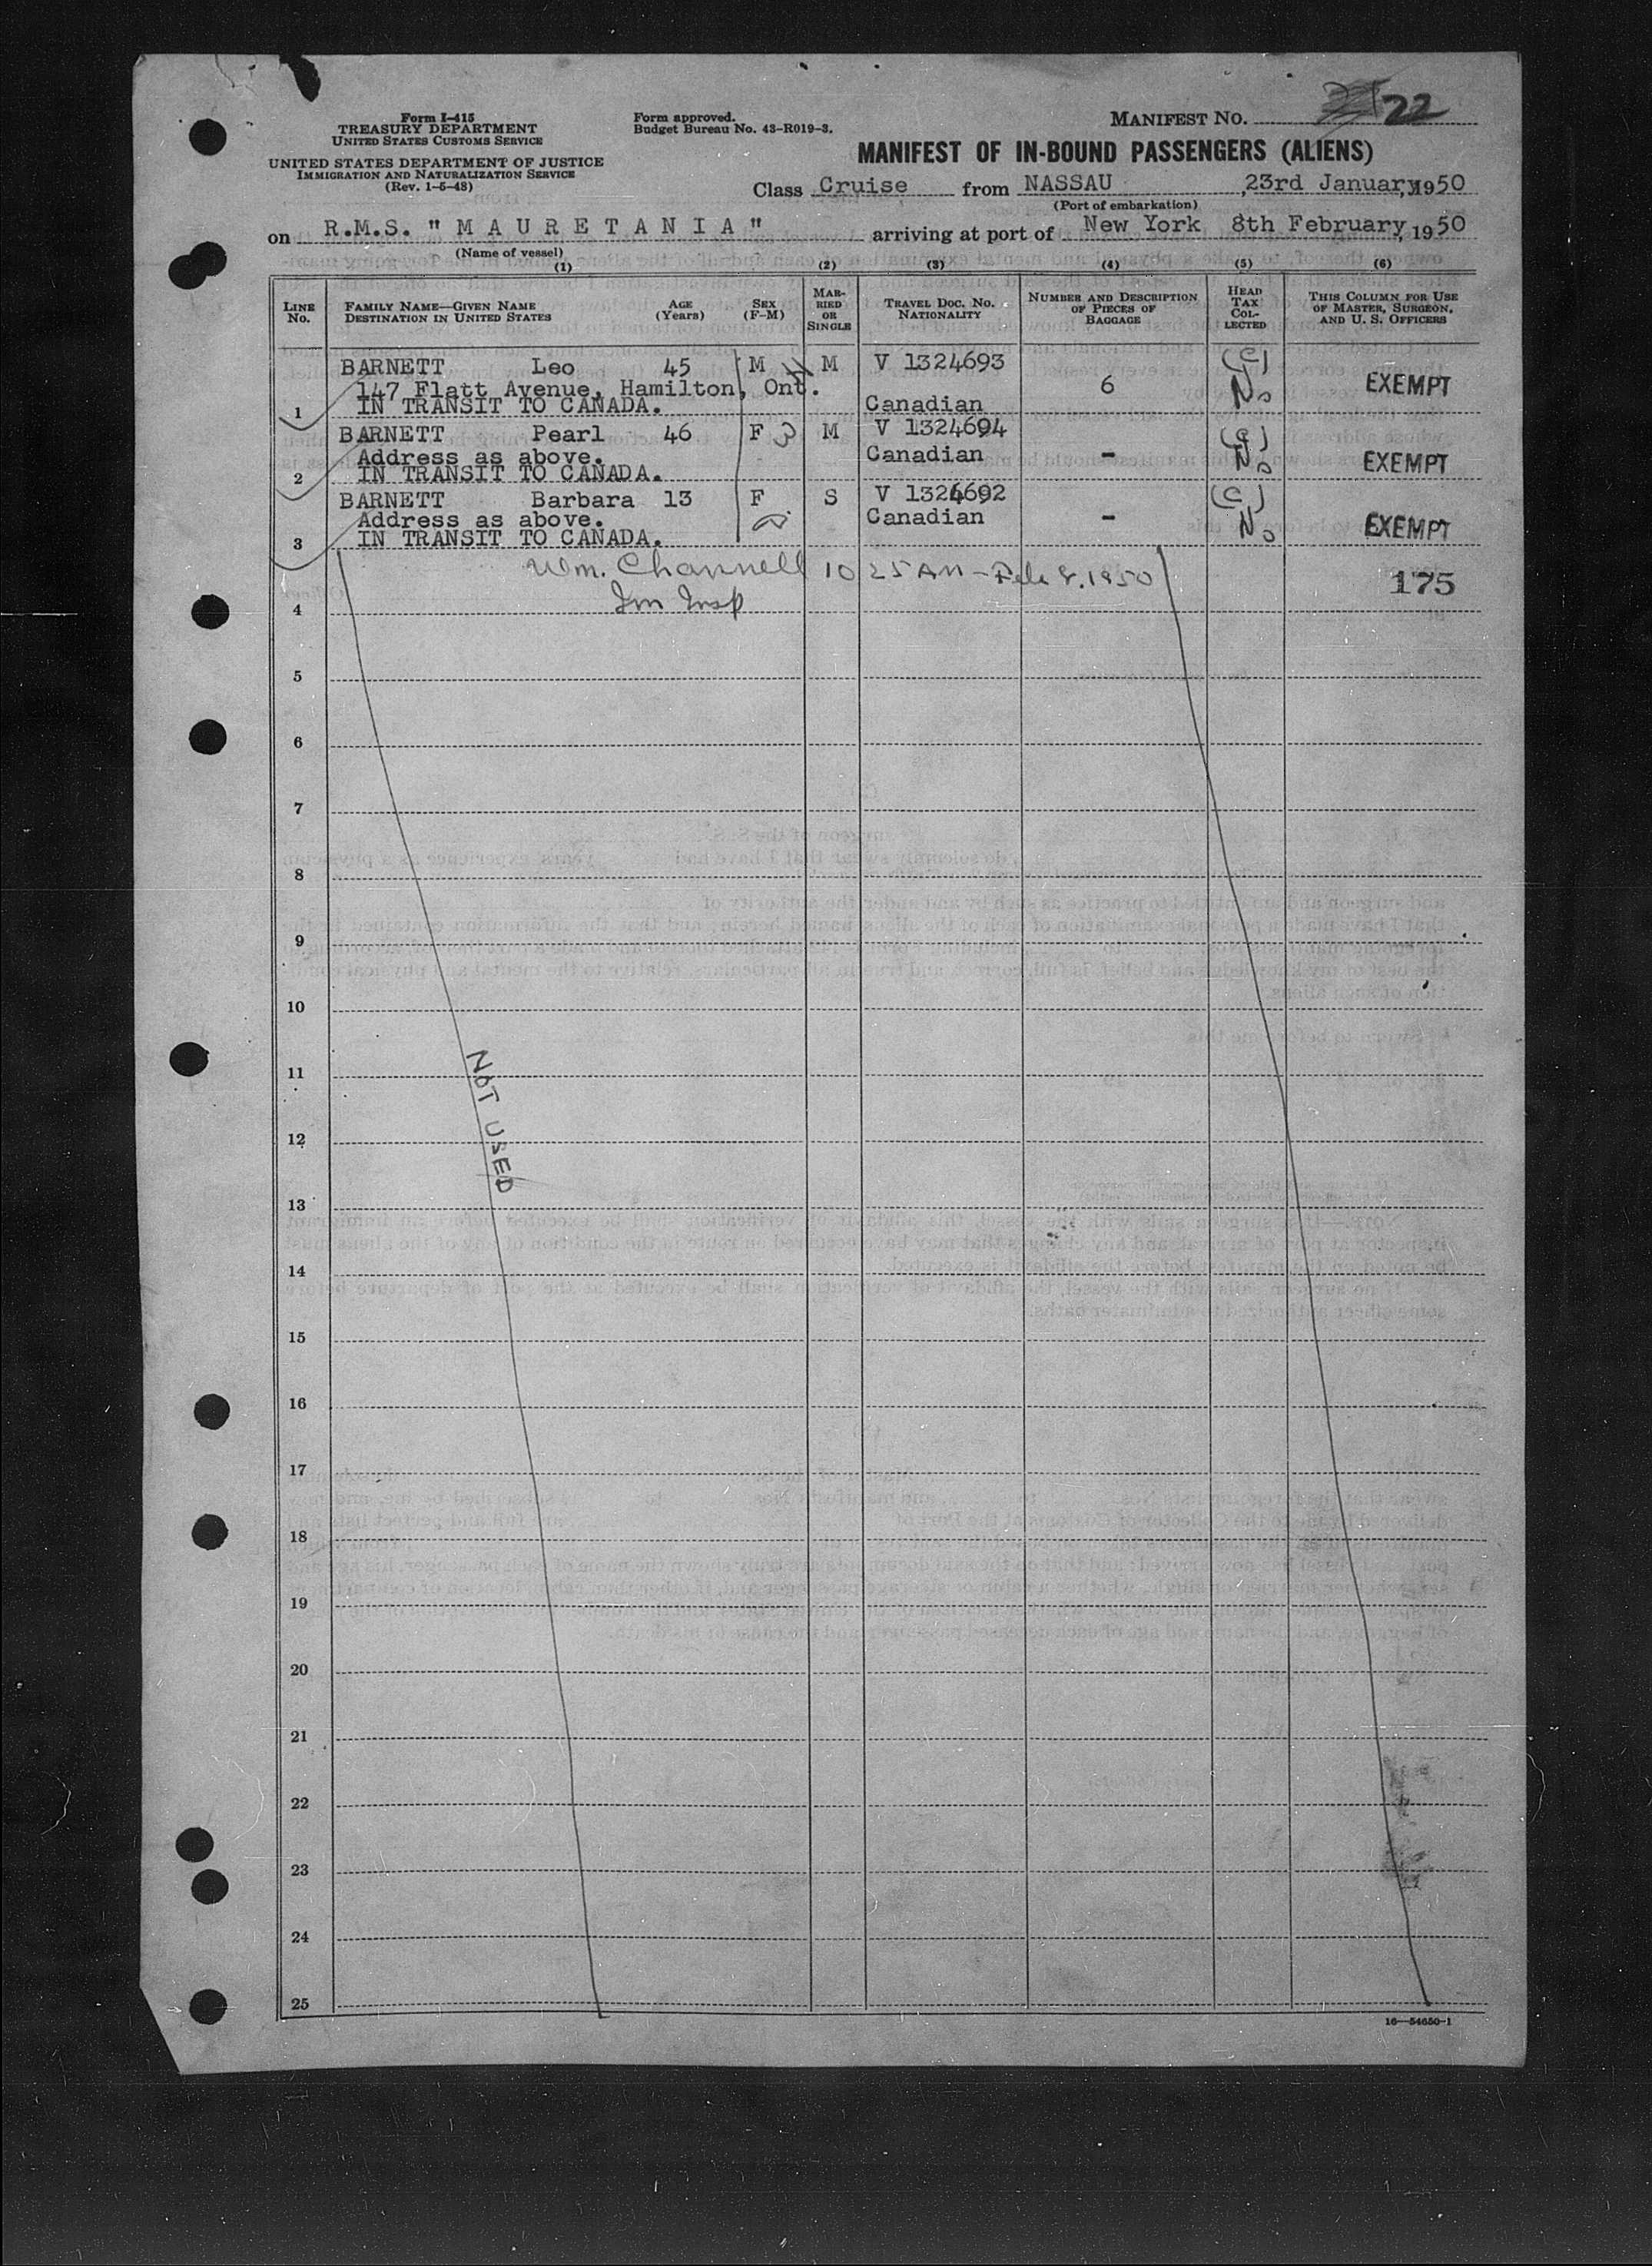 Form I-415
TREASURY DEPARTMENT
UNITED STATES CUSTOMS SERVICE
UNITED STATES DEPARTMENT OF JUSTICE
IMMIGRATION AND NATURALIZATION SERVICE
(Rev. 1-5-48)
Form approved.
Budget Bureau No. 43-R019-3.
MANIFEST NO. 22
MANIFEST OF IN-BOUND PASSENGERS (ALIENS)
Class Cruise from NASSAU, 23rd January, 1950
(Port of embarkation)
on R.M.S. "MAURETANIA" arriving at port of New York 8th February, 1950
(Name of vessel)
(1) (2) (3) (4) (5) (6)
LINE No. FAMILY NAME—GIVEN NAME DESTINATION IN UNITED STATES AGE (Years) SEX (F-M) MARRIED OR SINGLE TRAVEL DOC. NO. NATIONALITY NUMBER AND DESCRIPTION OF PIECES OF BAGGAGE HEAD TAX COLLECTED THIS COLUMN FOR USE OF MASTER, SURGEON, AND U. S. OFFICERS
BARNETT Leo 45 M M V 1324693 (C)
147 Flatt Avenue, Hamilton, Ont. 6 No EXEMPT
1 IN TRANSIT TO CANADA. Canadian
BARNETT Pearl 46 F M V 1324694 (C)
Address as above. Canadian - No EXEMPT
2 IN TRANSIT TO CANADA.
BARNETT Barbara 13 F S V 1324692 (C)
Address as above. Canadian - No EXEMPT
3 IN TRANSIT TO CANADA.
Wm. Channell 10 25 AM - Feb 8. 1950 175
4 Im Insp
5
6
7
8
9
10
11
NOT USED
12
13
14
15
16
17
18
19
20
21
22
23
24
25
16—54650-1